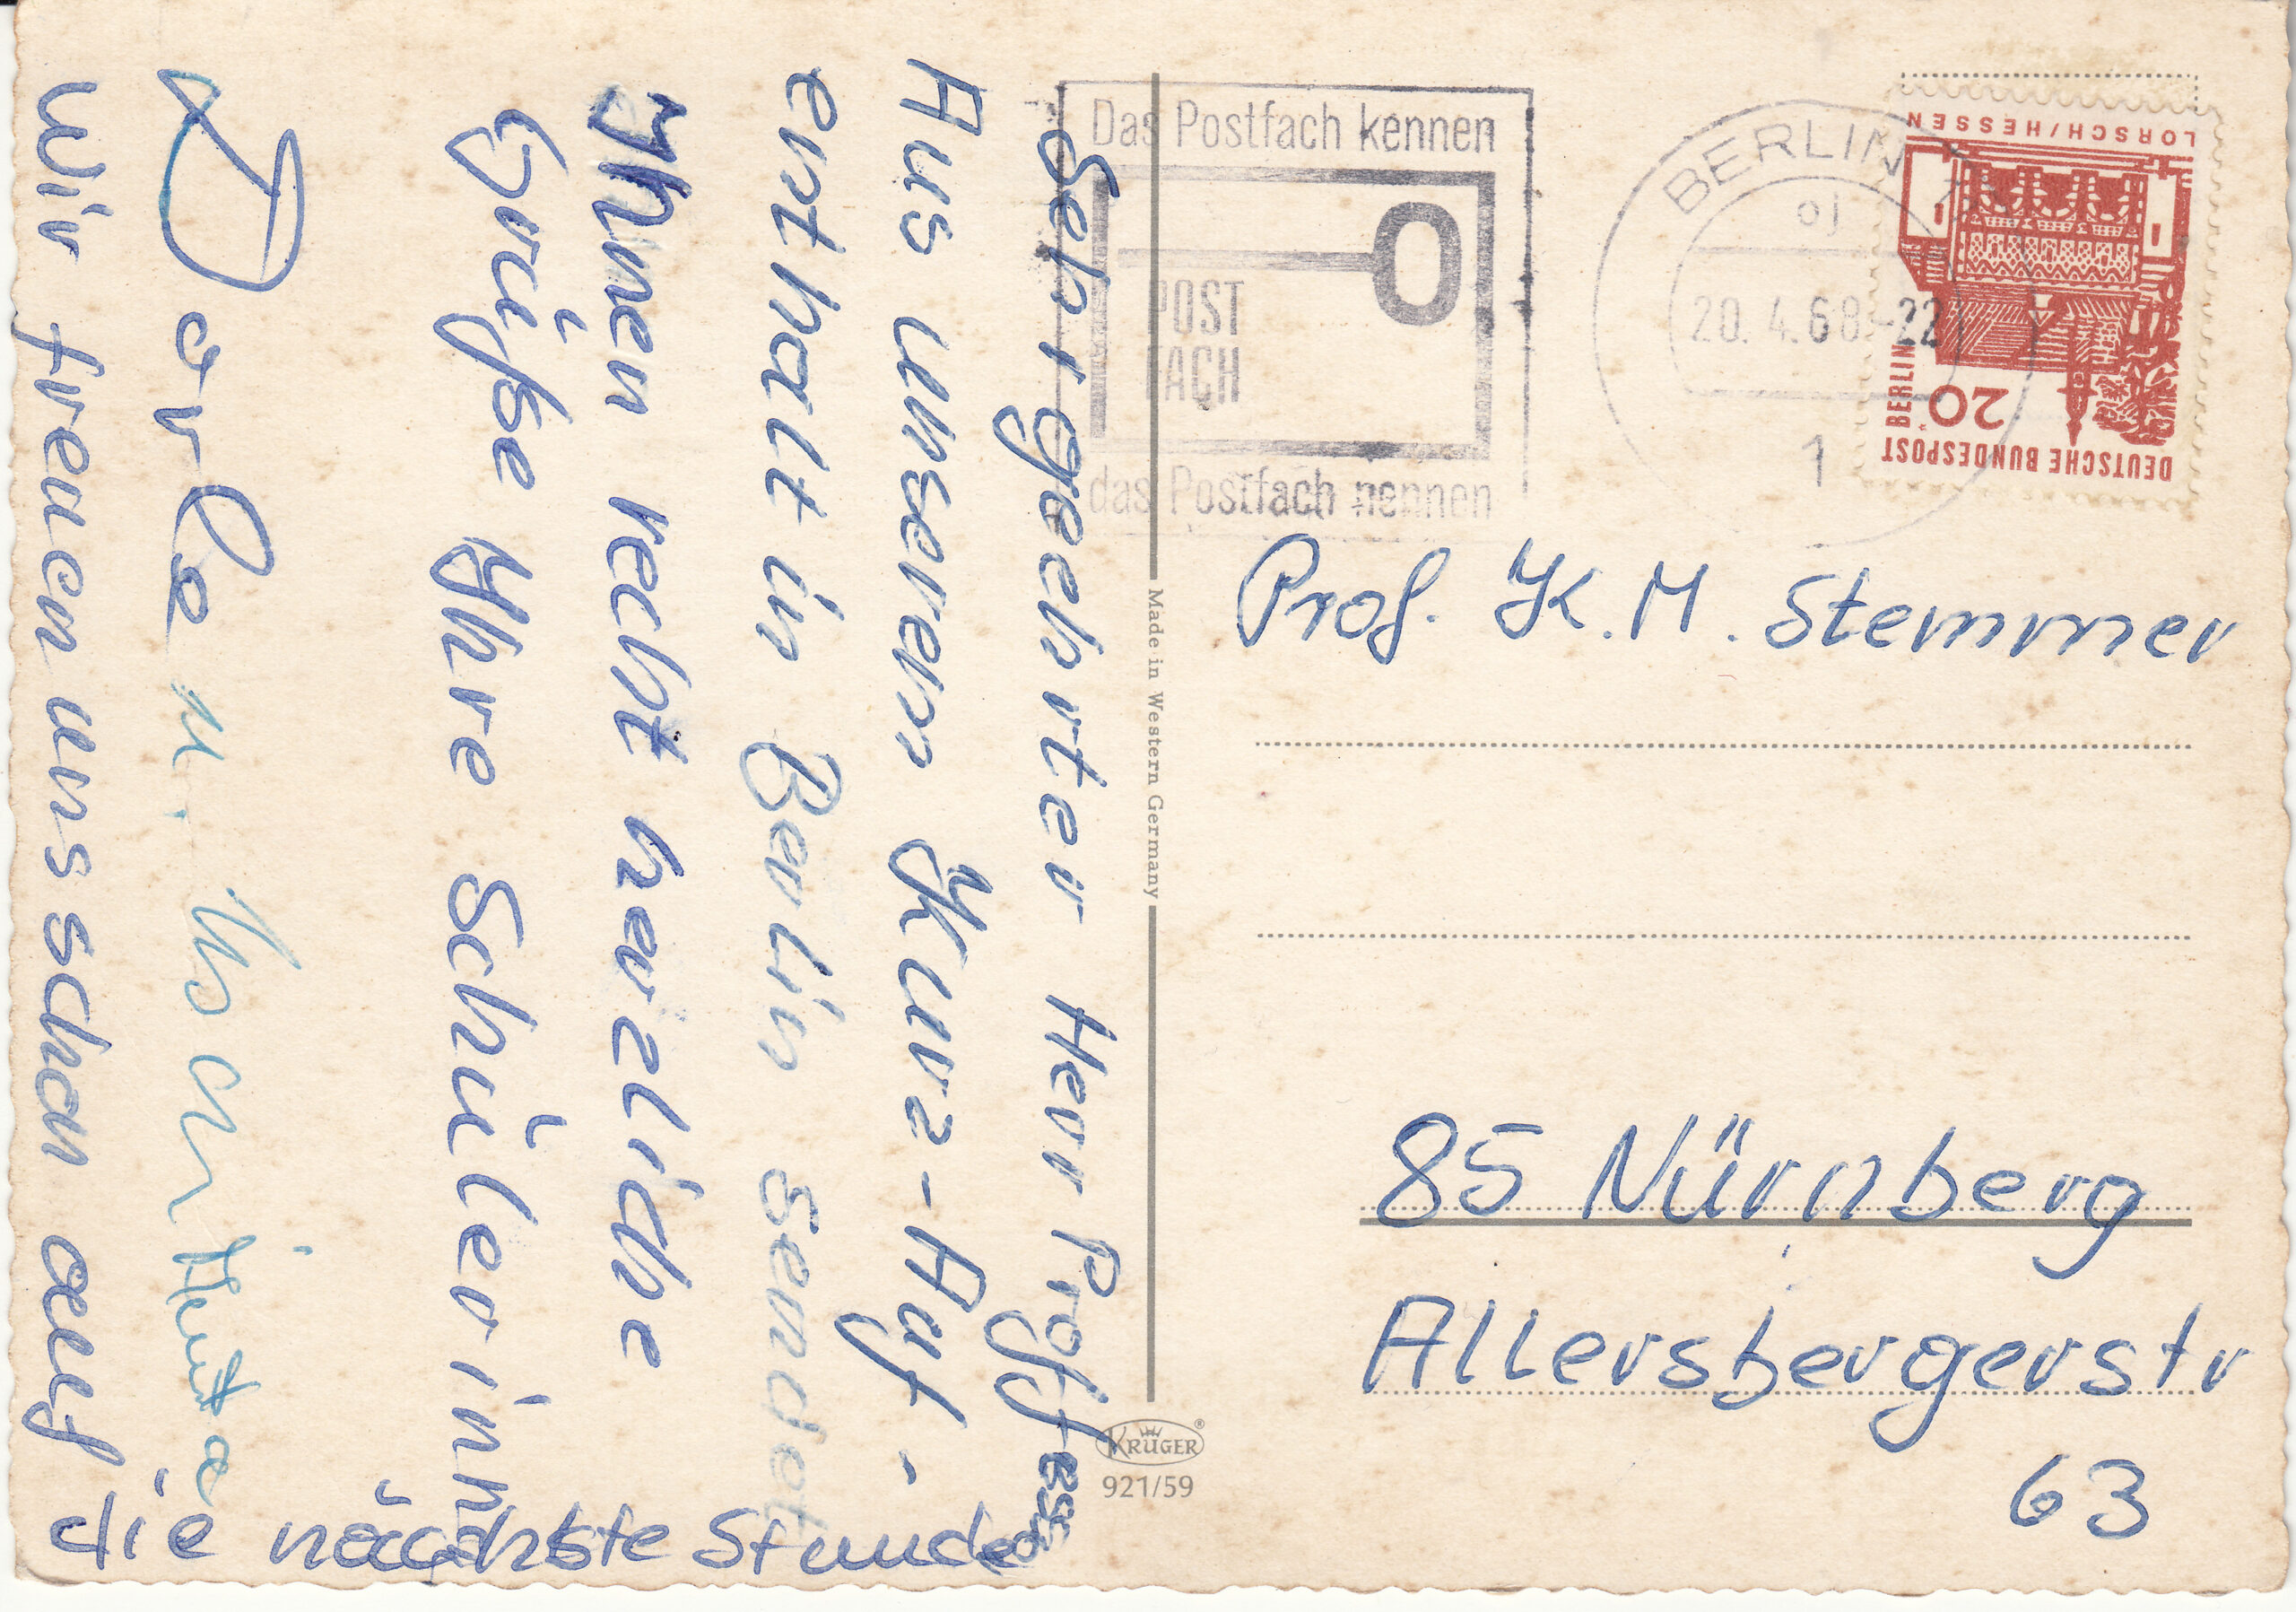 Sehr geehrter Herr Proffessor
Aus unseren Kurz-Auf-
enthalt in Berlin sendet
Ihnen recht herzliche
Grüße Ihre Schülerin
u.
Wir freuen uns schon auf
die nächste Stunde
Das Postfach kennen
POST
FACH
das Postfach nennen
BERLIN
oj
20.4.68-22
1
LORSCH/HESSEN
20
DEUTSCHE BUNDESPOST BERLIN
Prof. K. M. Stemmer
85 Nürnberg
Allersbergerstr
63
Made in Western Germany
KRÜGER®
921/59